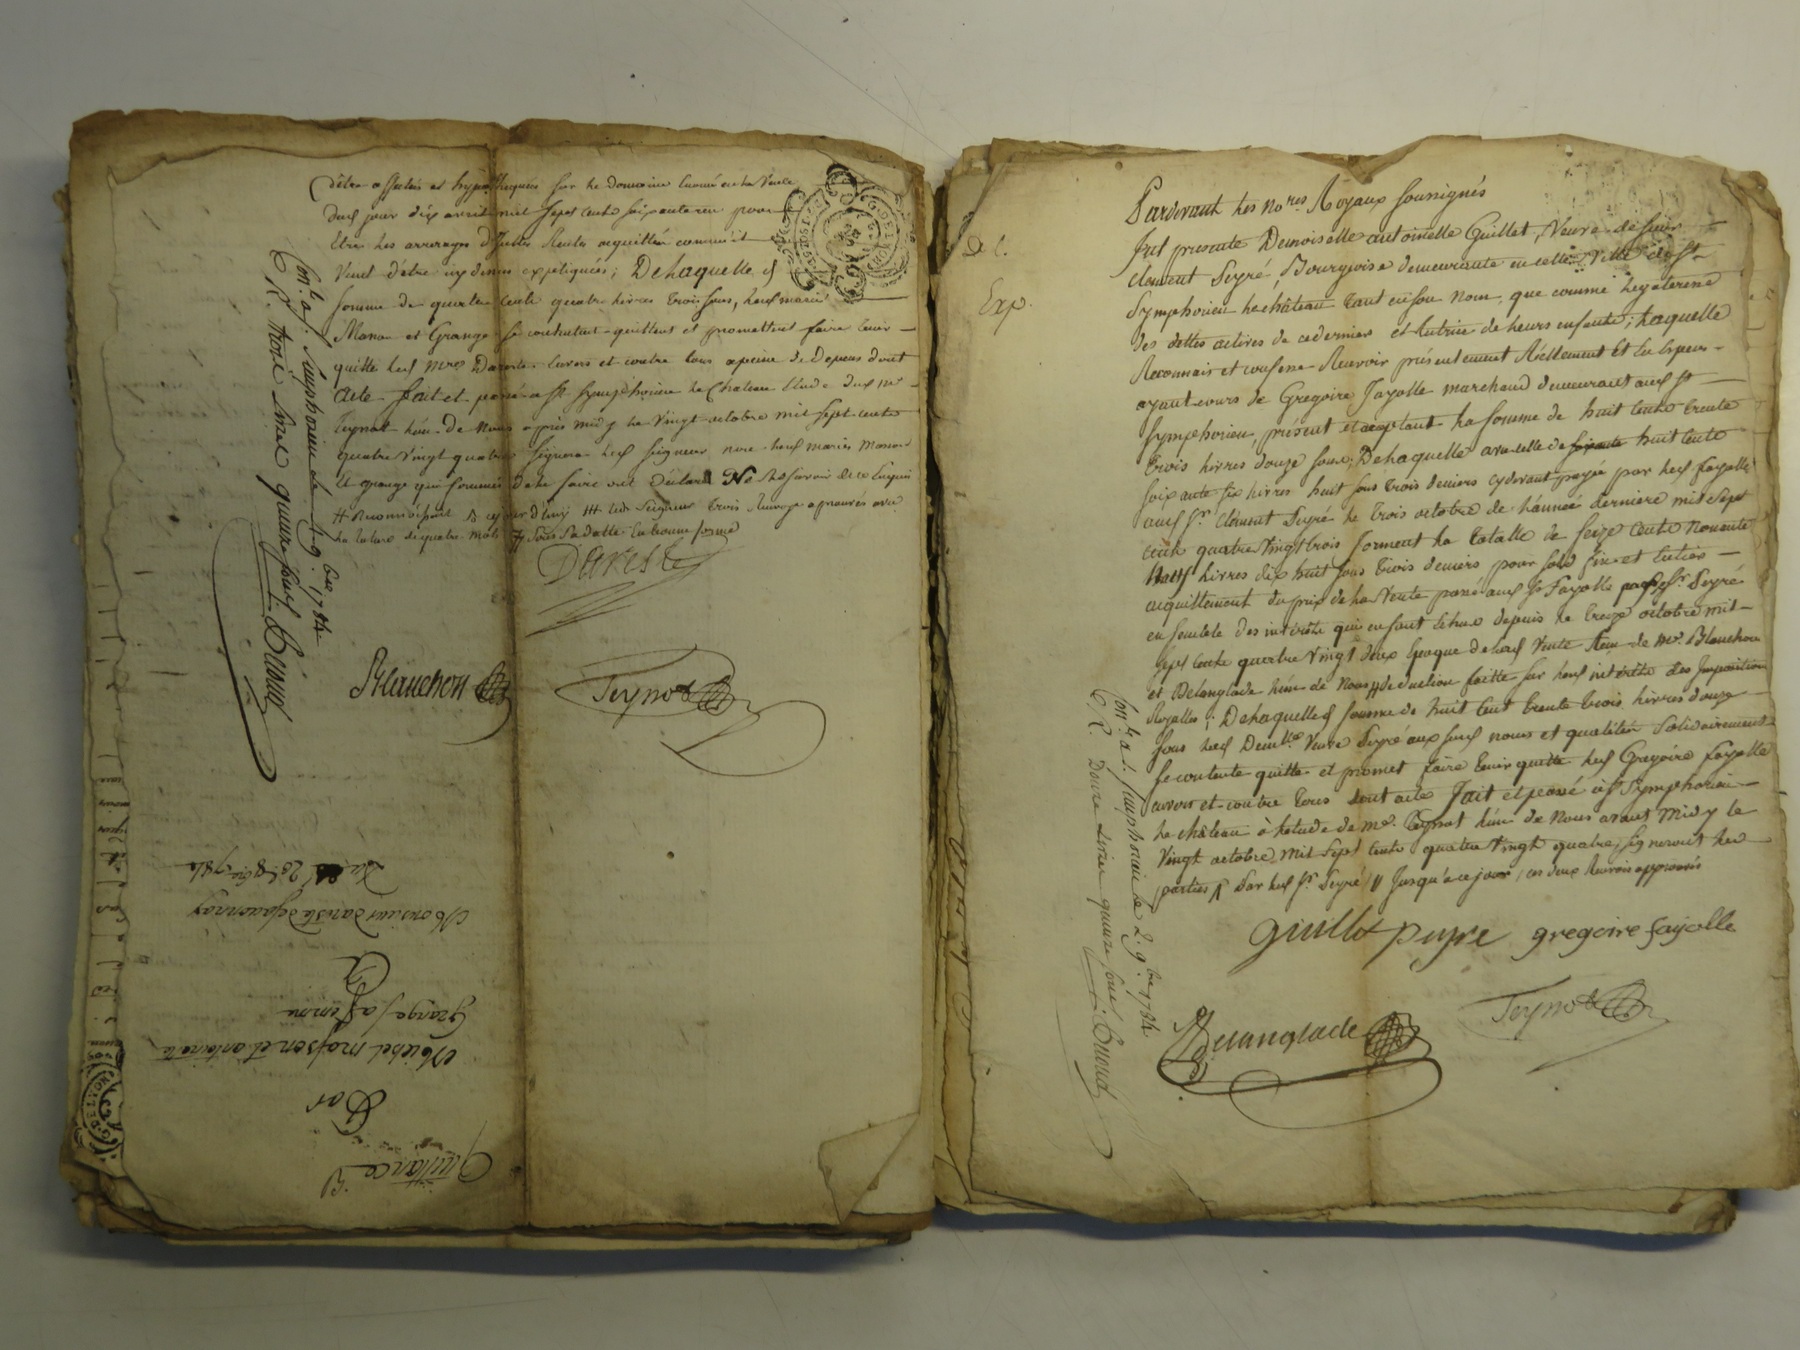 d'être affectés et hypothéqués sur le Domaine enoncé en la Vente
dud jour dix avril mil sept cents soixante un pour
Etre les arrerages d'Icelles Rentes acquittés comme il
vient d'être cy dessus expliqués; De laquelle
somme de quatre cents quatre livres trois sous, lesd mariés
Mason et Grange se contentent quittent et promettent faire tenir
quitte led Mre Dareste envers et contre tous a peine de Depens dont
Acte fait et passé a St Symphorien le Chateau Etude dud Me
Teynot l'un de Nous après midy le Vingt octobre mil sept cents
quatre vingt quatre signera led seigneur non lesd mariés Mason
et grange qui sommés de le faire ont Déclaré Ne le savoir de ce Enquis
la rature de quatre mots sous sa datte En bonne forme
Dareste
Blanchon
Teynot
Conlé a St Simphorien le 1 9bre 1784
C R. trois livres quinze sous Buond
Quittance
Par
Michel masson et antoinette
grange sa femme
A
Monsieur Dareste de Saconay
Du 20 8bre 1784
G. DE LYON
Del.
Exp.
Pardevant les nores Royaux soussignés
fut presente Demoiselle antoinette Guillet, Veuve de sieur
Clement Peyré, Bourgeoise demeurante en cette Ville de St
Symphorien le château tant en son Nom, que comme Légataire
des dettes actives de ce dernier et tutrice de leurs enfants; Laquelle
Reconnait et confesse Recevoir présentement Réellement Et En Especes
ayant cours de Gregoire Fayolle marchand demeurant aud St
Symphorien, présent et acceptant la somme de huit cents trente
trois livres douze sous; De laquelle avec celle de huit cents
soixante six livres huit sous trois deniers cydevant payée par led fayolle
aud Sr Clément Peyré le trois octobre de l'année derniere mil sept
cents quatre vingt trois forment la totalle de seize cents nonante
Neuf livres dix huit sous trois deniers pour sold fin et entier
acquittement du prix de la Vente passé aud Sr Fayolle par led Sr Peyré
ensemble des intérêts qui en sont échus depuis le treize octobre mil
sept cents quatre vingt deux Epoque de lad Vente Reçue de Me Blanchon
et Delanglade l'un de Nous deduction faitte sur lesd intérêts des Impositions
Royalles; De laquelle somme de huit cent trente trois livres douze
sous lad Demlle Veuve Peyré aux susd noms et qualités solidairement
se contente quitte et promet faire tenir quitte led Grégoire fayolle
envers et contre tous dont acte fait et passé à St Symphorien
le château à l'etude de Me Teynot l'un de Nous avant Midy le
Vingt octobre mil sept cents quatre vingt quatre, signeront les
parties par led Sr Peyré Jusqu'à ce jour, ces deux Renvois approuvés
guillet peyre gregoire fayolle
Delanglade
Teynot
Conlé a St Simphorien le 2 9bre 1784
C R. Douze livres quinze sous Buond